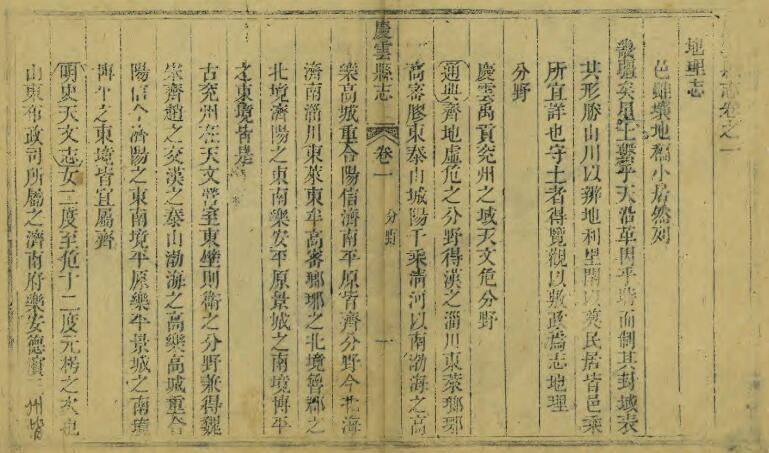 志卷之一
地理志
邑雖壤地褊小居然列
畿疆矣星土繫乎天沿革因乎時而制其封域表
其形勝山川以辨地利里閈以奠民居皆邑乘
所宜詳也守土者得覽觀以敷政焉志地理
分野
慶雲禹貢兖州之域天文危分野
通典齊地虛危之分野得漢之淄川東萊瑯琊
高密膠東泰山城陽千乘淸河以南渤海之高
慶雲縣志 卷一 分野 一
樂高城重合陽信濟南平原皆齊分野今北海
濟南淄川東萊東牟高密瑯琊之北境魯郡之
北境濟陽之東南樂安平原景城之南境博平
之東境皆是
古兖州在天文營室東壁則衛之分野兼得魏
宋齊趙之交漢之泰山渤海之高樂高城重合
陽信今濟陽之東南境平原樂安景城之南境
博平之東境皆宜屬齊
明史天文志女二度至危十二度元枵之次也
山東布政司所屬之濟南府樂安德濱三州皆